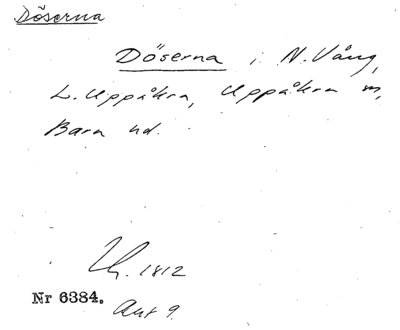 Döserna
Döserna i N. Vång,
L. Uppåkra, Uppåkra sn,
Bara hd.
1812
Nr 6384.
Akt 9.